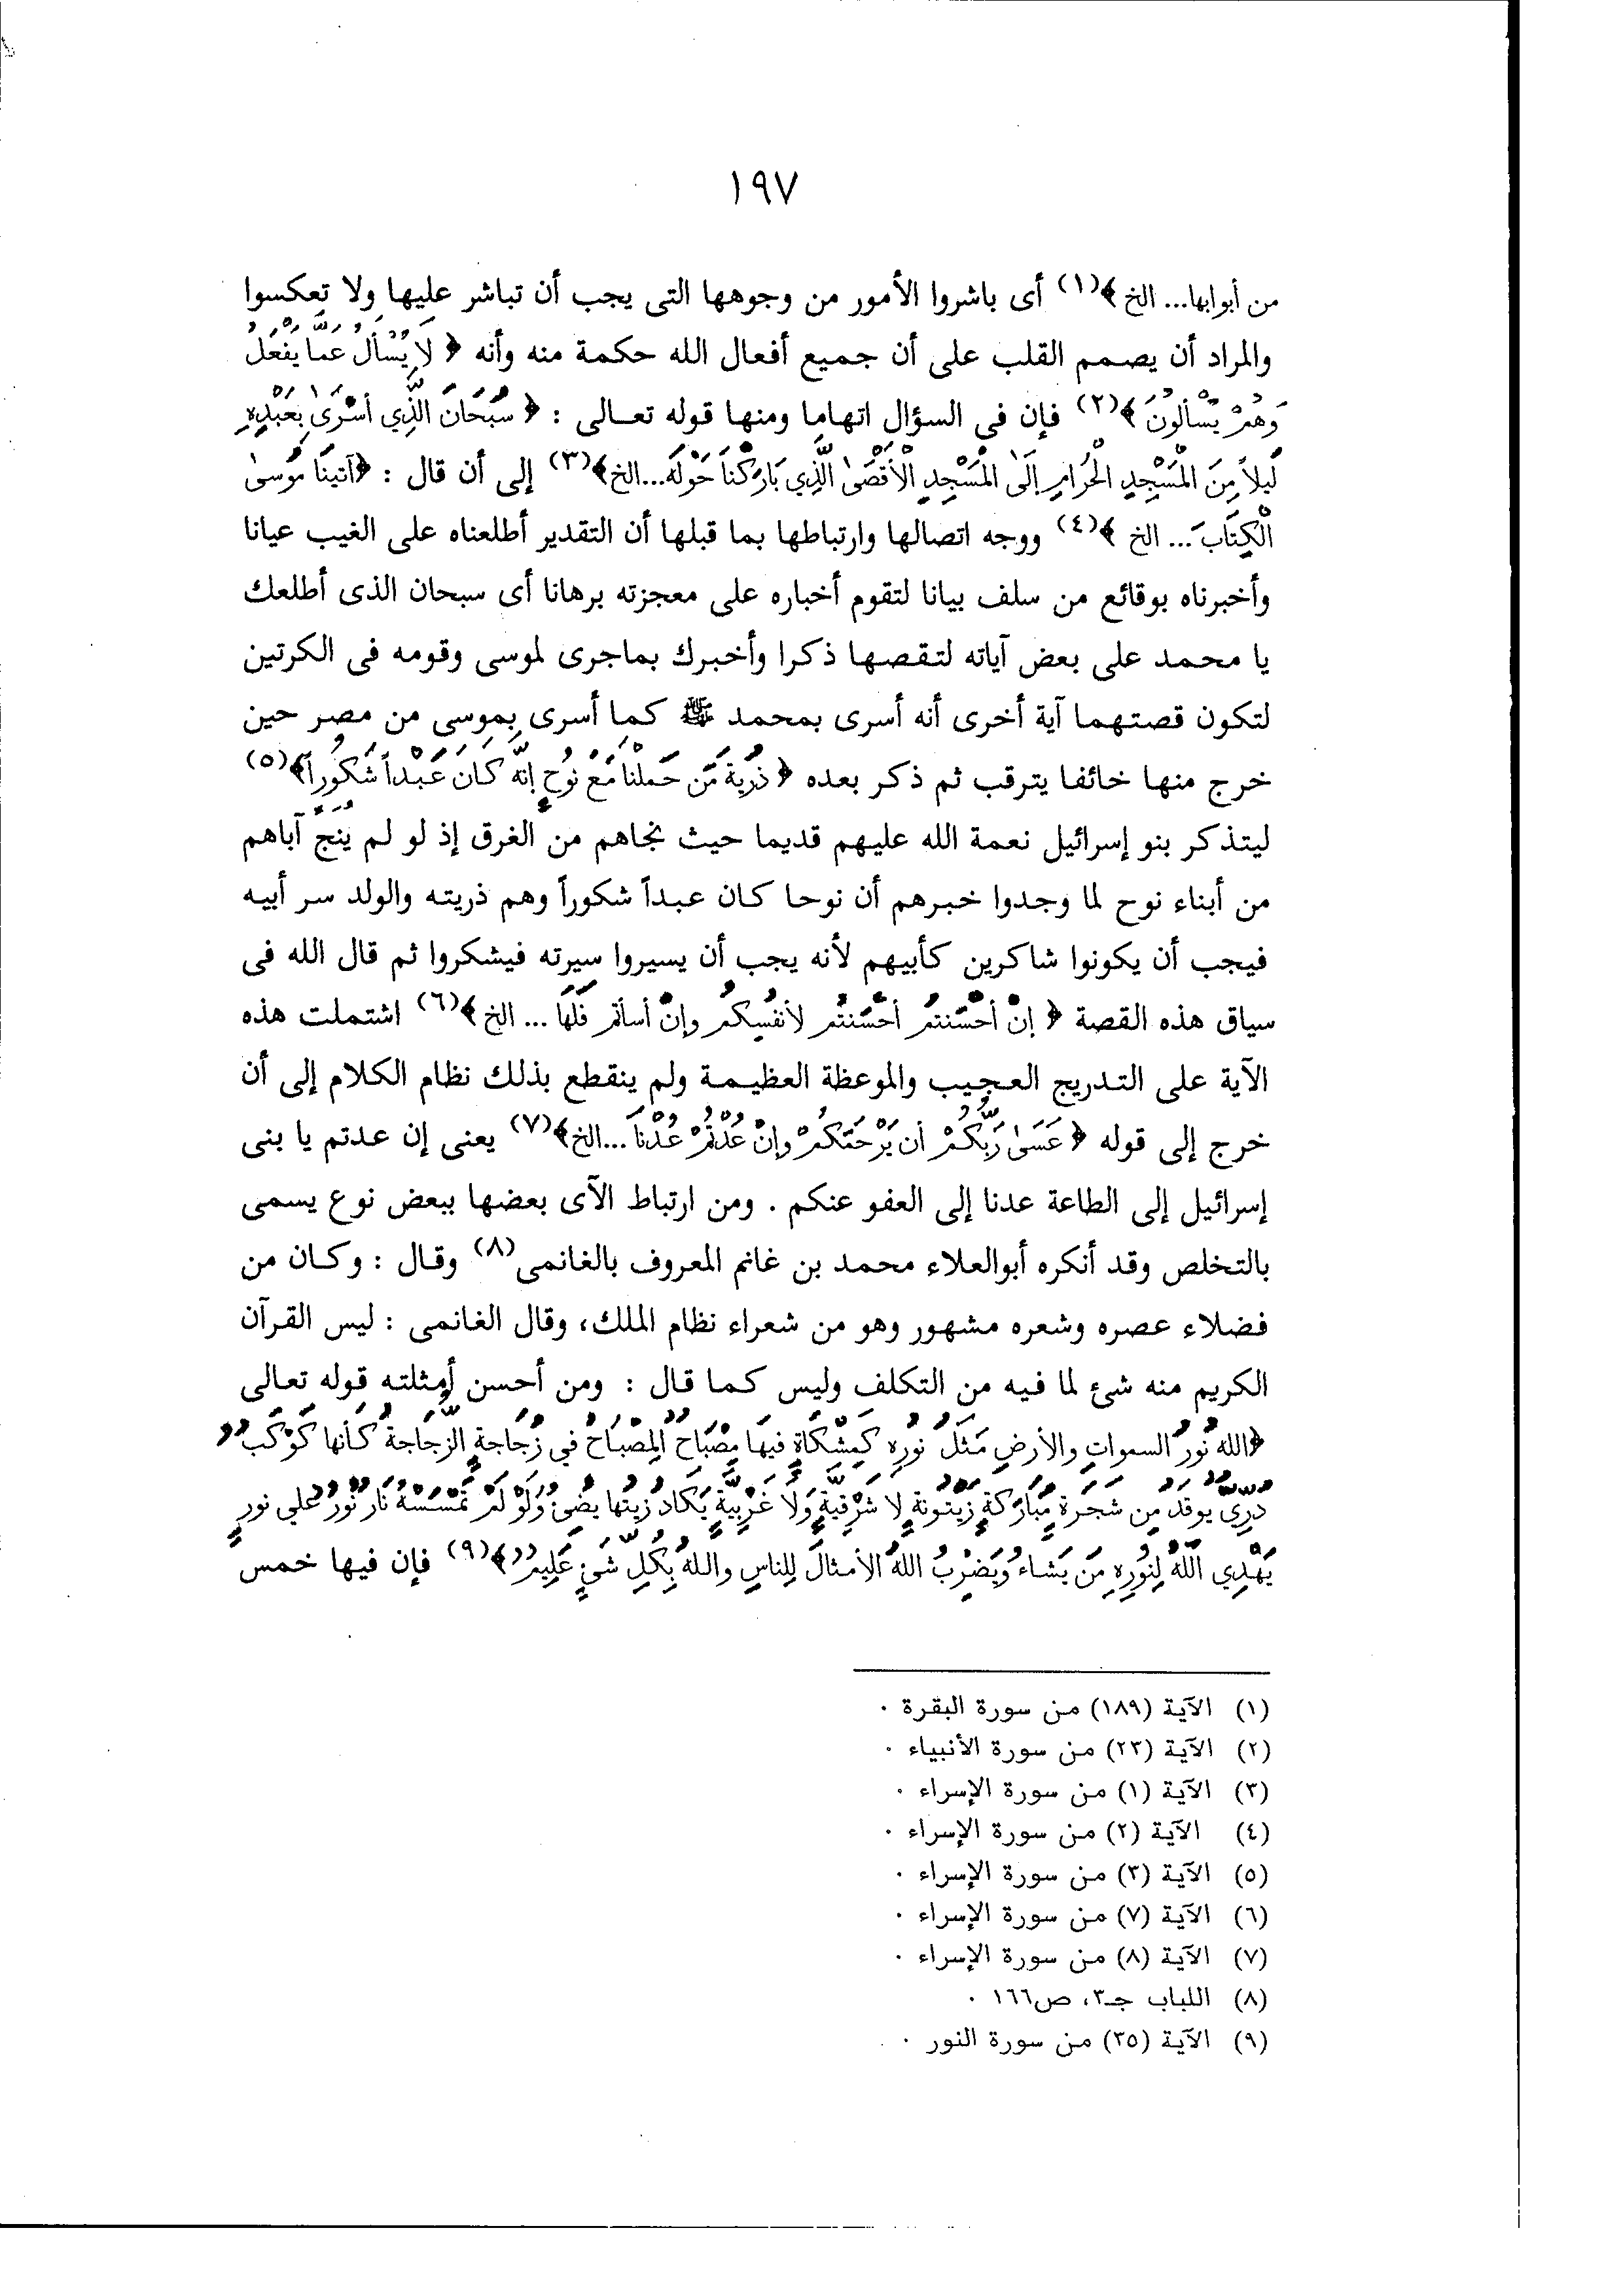 ١٩٧
من أبوابها... الخ ﴾(١) أى باشروا الأمور من وجوهها التى يجب أن تباشر عليها ولا تعكسوا
والمراد أن يصمم القلب على أن جميع أفعال الله حكمة منه وأنه ﴿ لَا يُسْأَلُ عَمَّا يَفْعَلُ
وَهُمْ يُسْأَلُونَ ﴾(٢) فإن فى السؤال اتهاما ومنها قوله تعالى : ﴿ سُبْحَانَ الَّذِي أَسْرَىٰ بِعَبْدِهِ
لَيْلاً مِنَ الْمَسْجِدِ الْحَرَامِ إِلَى الْمَسْجِدِ الْأَقْصَىٰ الَّذِي بَارَكْنَا حَوْلَهُ...الخ﴾(٣) إلى أن قال : ﴿آتَيْنَا مُوسَىٰ
الْكِتَابَ ... الخ ﴾(٤) ووجه اتصالها وارتباطها بما قبلها أن التقدير أطلعناه على الغيب عيانا
وأخبرناه بوقائع من سلف بيانا لتقوم أخباره على معجزته برهانا أى سبحان الذى أطلعك
يا محمد على بعض آياته لتقصها ذكرا وأخبرك بماجرى لموسى وقومه فى الكرتين
لتكون قصتهما آية أخرى أنه أسرى بمحمد ﷺ كما أسرى بموسى من مصر حين
خرج منها خائفا يترقب ثم ذكر بعده ﴿ ذُرِّيَةَ مَن حَمَلْنَا مَعَ نُوحٍ إِنَّهُ كَانَ عَبْداً شَكُوراً﴾(٥)
ليتذكر بنو إسرائيل نعمة الله عليهم قديما حيث نجاهم من الغرق إذ لو لم يُنَجِّ آباهم
من أبناء نوح لما وجدوا خبرهم أن نوحا كان عبداً شكوراً وهم ذريته والولد سر أبيه
فيجب أن يكونوا شاكرين كأبيهم لأنه يجب أن يسيروا سيرته فيشكروا ثم قال الله فى
سياق هذه القصة ﴿ إِنْ أَحْسَنتُمْ أَحْسَنتُمْ لأَنفُسِكُمْ وإِنْ أسأتم فَلَهَا ... الخ﴾(٦) اشتملت هذه
الآية على التدريج العجيب والموعظة العظيمة ولم ينقطع بذلك نظام الكلام إلى أن
خرج إلى قوله ﴿ عَسَىٰ رَبُّكُمْ أن يَرْحَمَكُمْ وإِنْ عُدْتُمْ عُدْنَا ...الخ﴾(٧) يعنى إن عدتم يا بنى
إسرائيل إلى الطاعة عدنا إلى العفو عنكم . ومن ارتباط الآى بعضها ببعض نوع يسمى
بالتخلص وقد أنكره أبوالعلاء محمد بن غانم المعروف بالغانمى(٨) وقال : وكان من
فضلاء عصره وشعره مشهور وهو من شعراء نظام الملك، وقال الغانمى : ليس القرآن
الكريم منه شئ لما فيه من التكلف وليس كما قال : ومن أحسن أمثلته قوله تعالى
﴿الله نُورُ السموات والأرضِ مَثَلُ نُورِهِ كَمِشْكَاةٍ فيهَا مِصْبَاحٌ الْمِصْبَاحُ في زُجَاجةٍ الزُّجَاجَةُ كَأَنها كَوْكَبٌ
دُرِّيٌّ يوقَدُ مِن شجَرةٍ مُبَارَكةٍ زَيْتونةٍ لا شَرْقيَّةٍ وَلَا غَرْبِيَّةٍ يَكَادُ زيتُها يضُئُ وَلَوْ لَمْ تَمْسَسْهُ نَارٌ نُّورٌ على نورٍ
يَهْدِي اللهُ لِنورِهِ مَن يَشاءُ وَيَضْرِبُ اللهُ الأمثالَ لِلناسِ واللهُ بِكُلِّ شَئٍ عَلِيمٌ﴾(٩) فإن فيها خمس
(١) الآية (١٨٩) من سورة البقرة .
(٢) الآية (٢٣) من سورة الأنبياء .
(٣) الآية (١) من سورة الإسراء .
(٤) الآية (٢) من سورة الإسراء .
(٥) الآية (٣) من سورة الإسراء .
(٦) الآية (٧) من سورة الإسراء .
(٧) الآية (٨) من سورة الإسراء .
(٨) اللباب جـ٣، ص١٦٦ .
(٩) الآية (٣٥) من سورة النور .